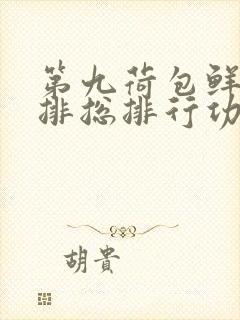 第九荷包鲜
排总排行功
胡貴